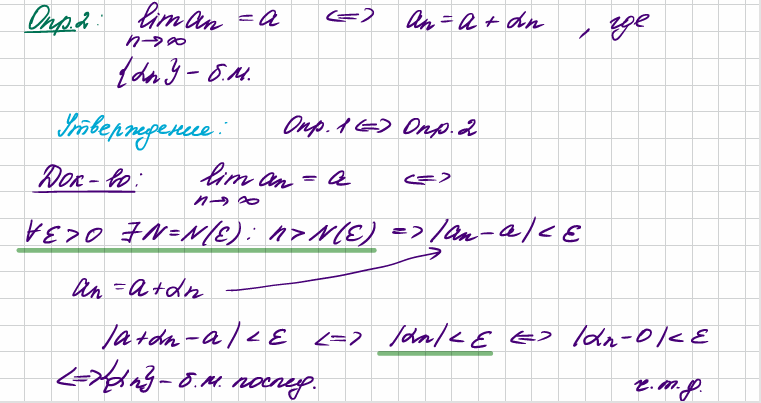 Опр.2: lim aₙ = a <=> aₙ = a + αₙ , где
n→∞
{αₙ} – б.м.
Утверждение: Опр.1 <=> Опр.2
Док-во: lim aₙ = a <=>
n→∞
∀ε>0 ∃N=N(ε): n>N(ε) => |aₙ–a|<ε
aₙ = a+αₙ
|a+αₙ–a|<ε <=> |αₙ|<ε <=> |αₙ–0|<ε
<=>{αₙ} – б.м. послед. ч.т.д.